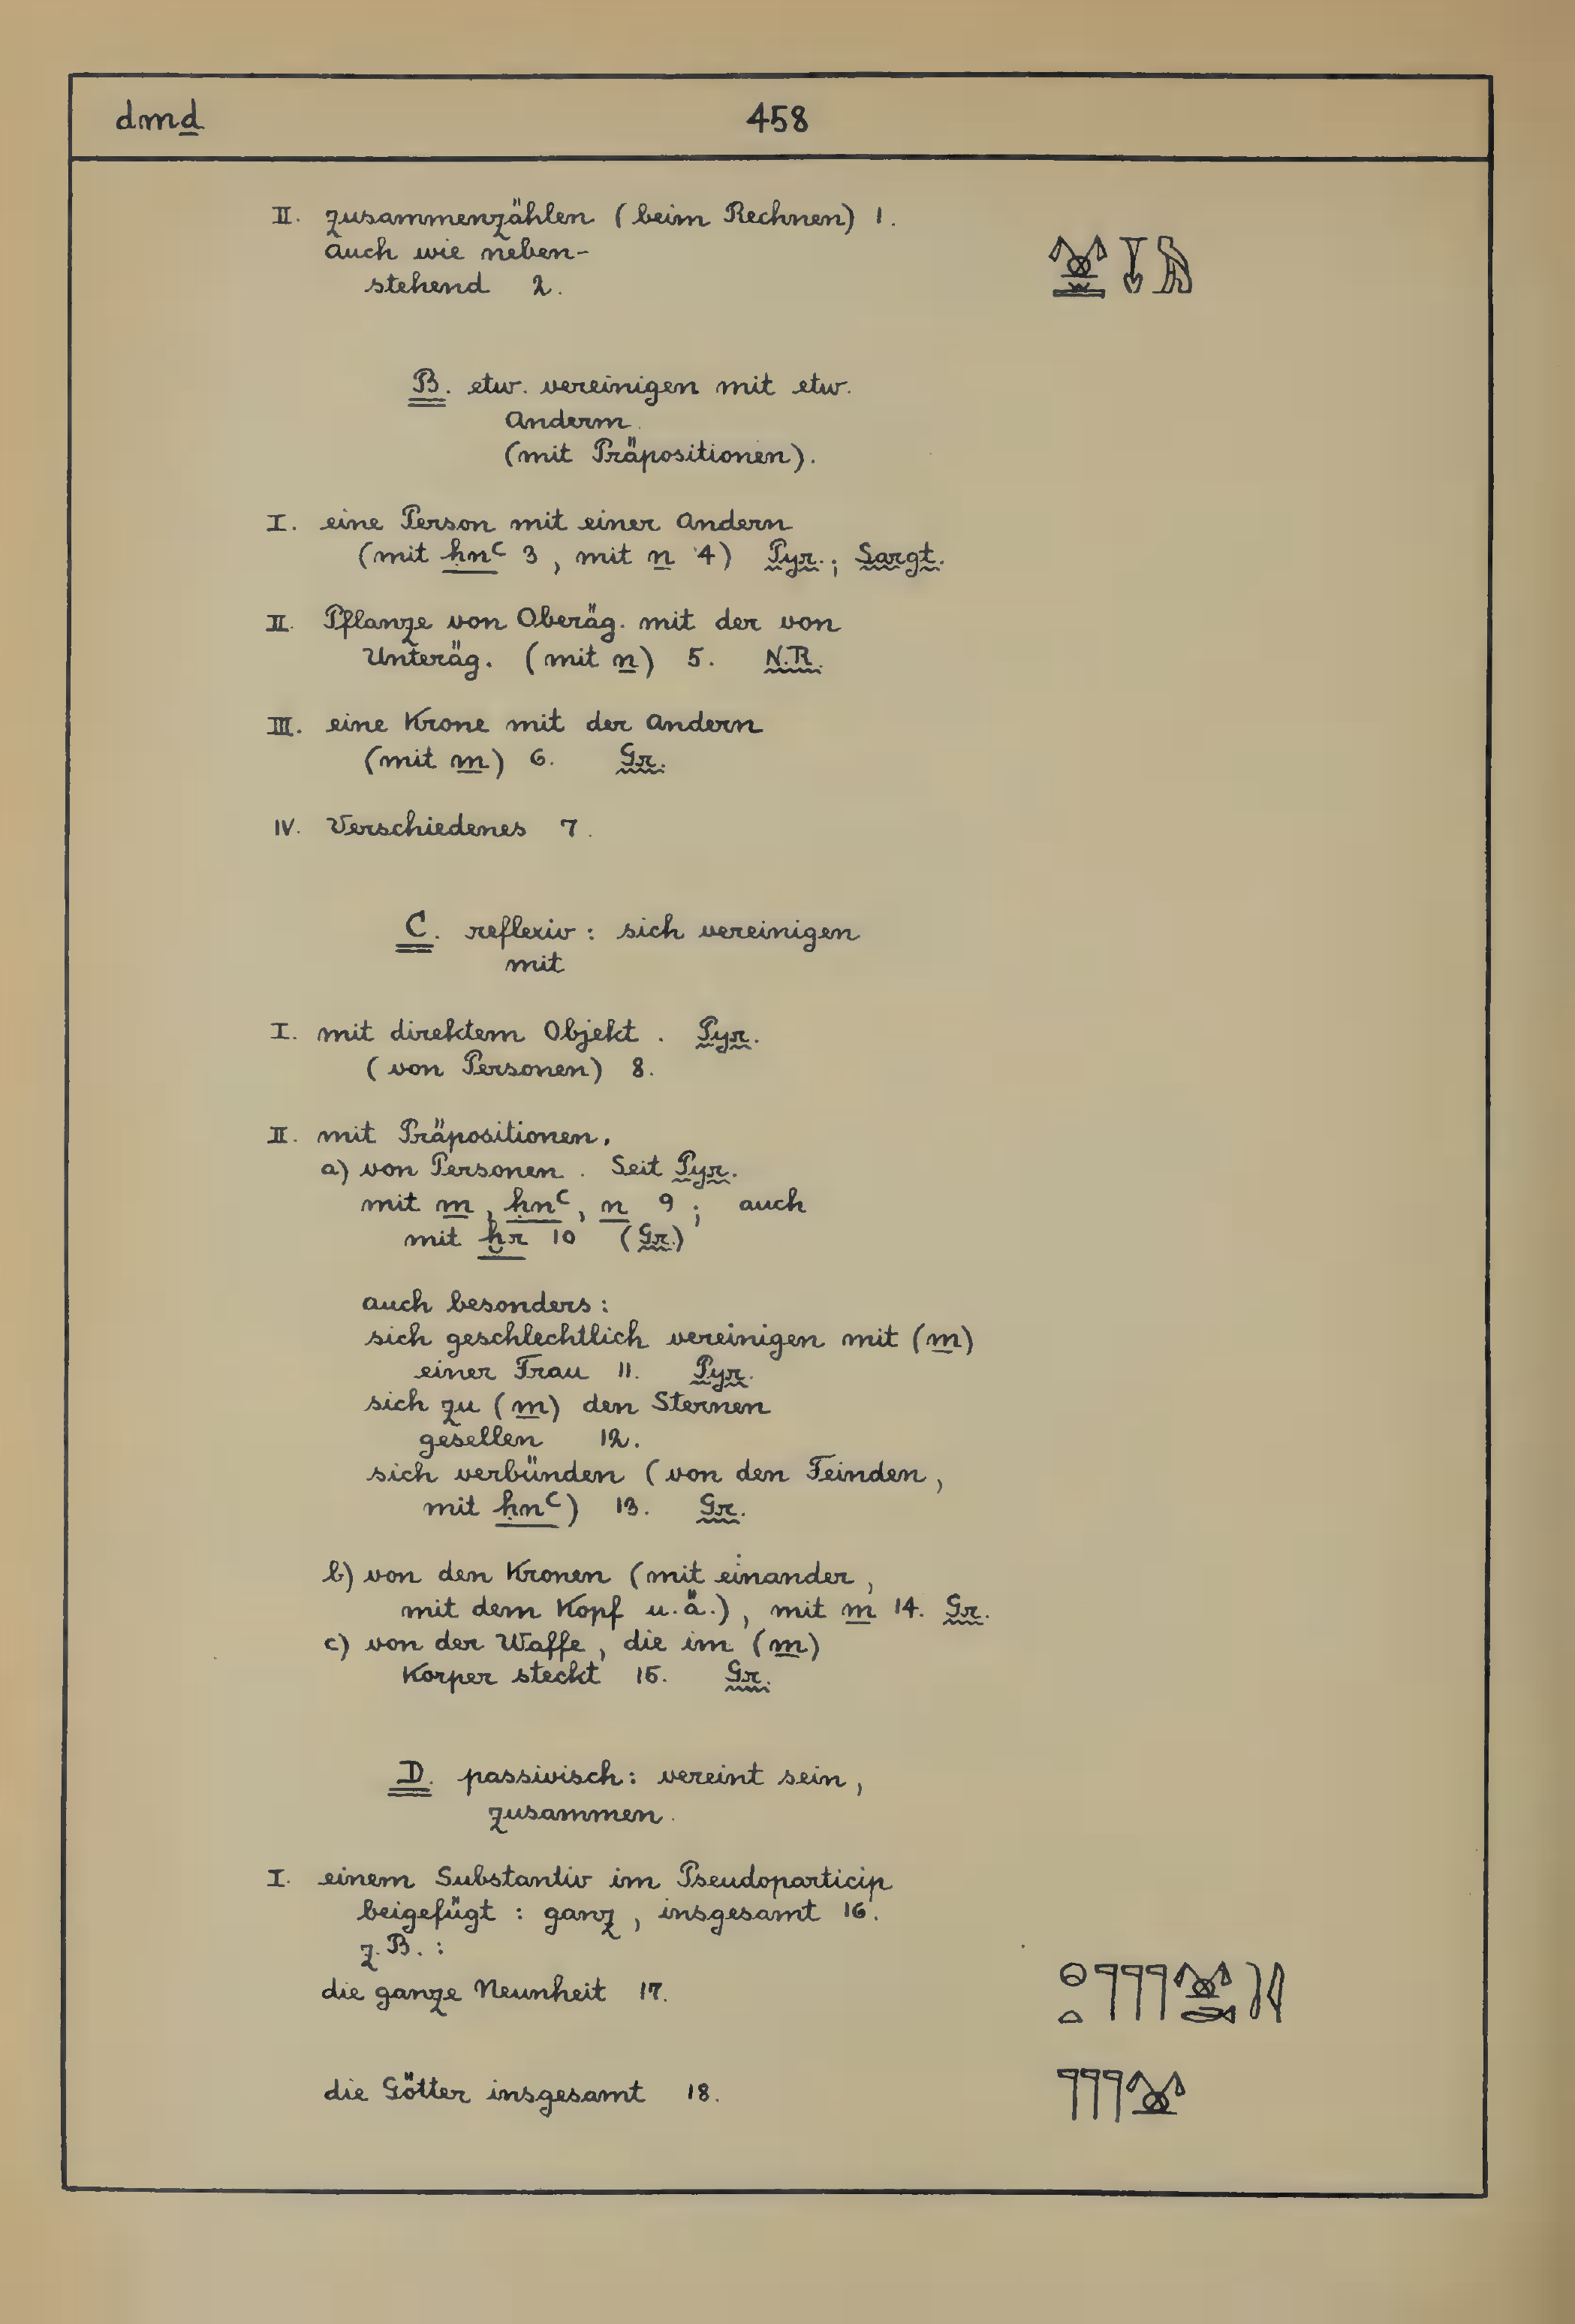 dmḏ 458
II. zusammenzählen (beim Rechnen) 1.
auch wie neben-
stehend 2.
B. etw. vereinigen mit etw.
Anderm.
(mit Präpositionen).
I. eine Person mit einer andern
(mit ḥnꜥ 3, mit n 4) Pyr.; Sargt.
II. Pflanze von Oberäg. mit der von
Unteräg. (mit n) 5. N.R.
III. eine Krone mit der andern
(mit m) 6. Gr.
IV. Verschiedenes 7.
C. reflexiv: sich vereinigen
mit
I. mit direktem Objekt. Pyr.
(von Personen) 8.
II. mit Präpositionen.
a) von Personen. Seit Pyr.
mit m, ḥnꜥ, n 9; auch
mit ḫr 10 (Gr.)
auch besonders:
sich geschlechtlich vereinigen mit (m)
einer Frau 11. Pyr.
sich zu (m) den Sternen
gesellen 12.
sich verbünden (von den Feinden,
mit ḥnꜥ) 13. Gr.
b) von den Kronen (mit einander,
mit dem Kopf u.ä.), mit m 14. Gr.
c) von der Waffe, die im (m)
Körper steckt 15. Gr.
D. passivisch: vereint sein,
zusammen.
I. einem Substantiv im Pseudoparticip
beigefügt: ganz, insgesamt 16.
z.B.:
die ganze Neunheit 17.
die Götter insgesamt 18.